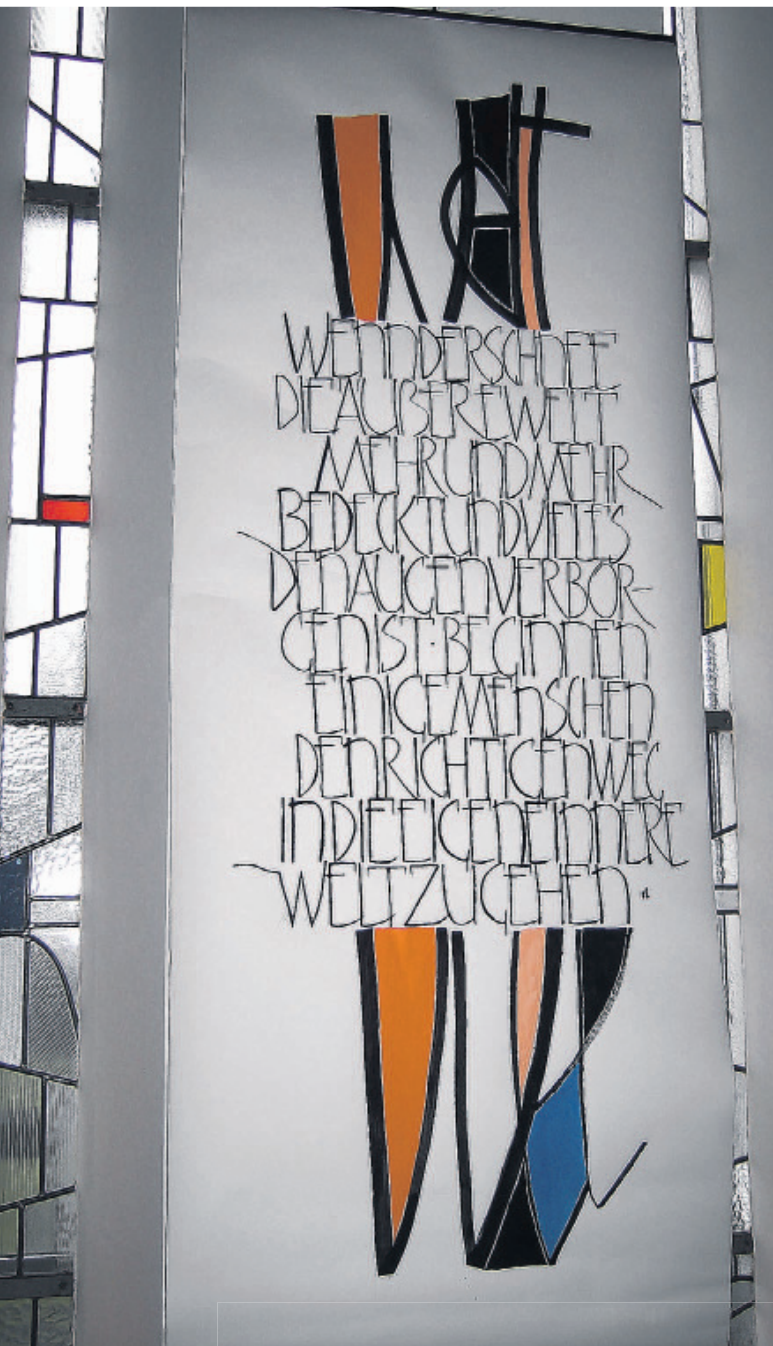 WENN DER SCHNEE
DIE ÄUßERE WELT
MEHR UND MEHR
BEDECKT UND VIELES
DEN AUGEN VERBOR-
GEN IST · BEGINNEN
EINIGE MENSCHEN
DEN RICHTIGEN WEG
IN DIE EIGENE INNERE
WELT ZU GEHEN